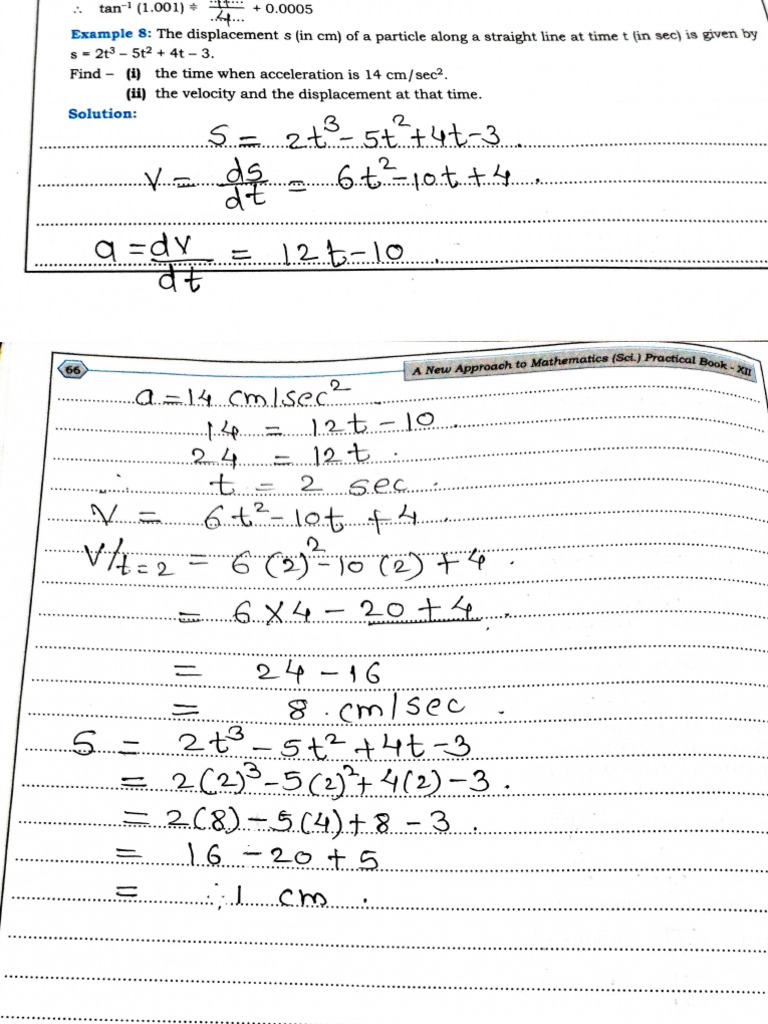 ∴ tan⁻¹ (1.001) ≑ ..../4 + 0.0005
Example 8: The displacement s (in cm) of a particle along a straight line at time t (in sec) is given by
s = 2t³ – 5t² + 4t – 3.
Find – (i) the time when acceleration is 14 cm/sec².
(ii) the velocity and the displacement at that time.
Solution:
S = 2t³ - 5t² + 4t - 3.
V = ds/dt = 6t² - 10t + 4.
a = dv/dt = 12t - 10.
66
A New Approach to Mathematics (Sci.) Practical Book - XII
a = 14 cm/sec²
14 = 12t - 10.
24 = 12t.
∴ t = 2 sec.
V = 6t² - 10t + 4.
V/t=2 = 6(2)² - 10(2) + 4.
= 6 × 4 - 20 + 4.
= 24 - 16
= 8 . cm/sec.
S = 2t³ - 5t² + 4t - 3
= 2(2)³ - 5(2)² + 4(2) - 3.
= 2(8) - 5(4) + 8 - 3.
= 16 - 20 + 5
= ∴ 1 cm.